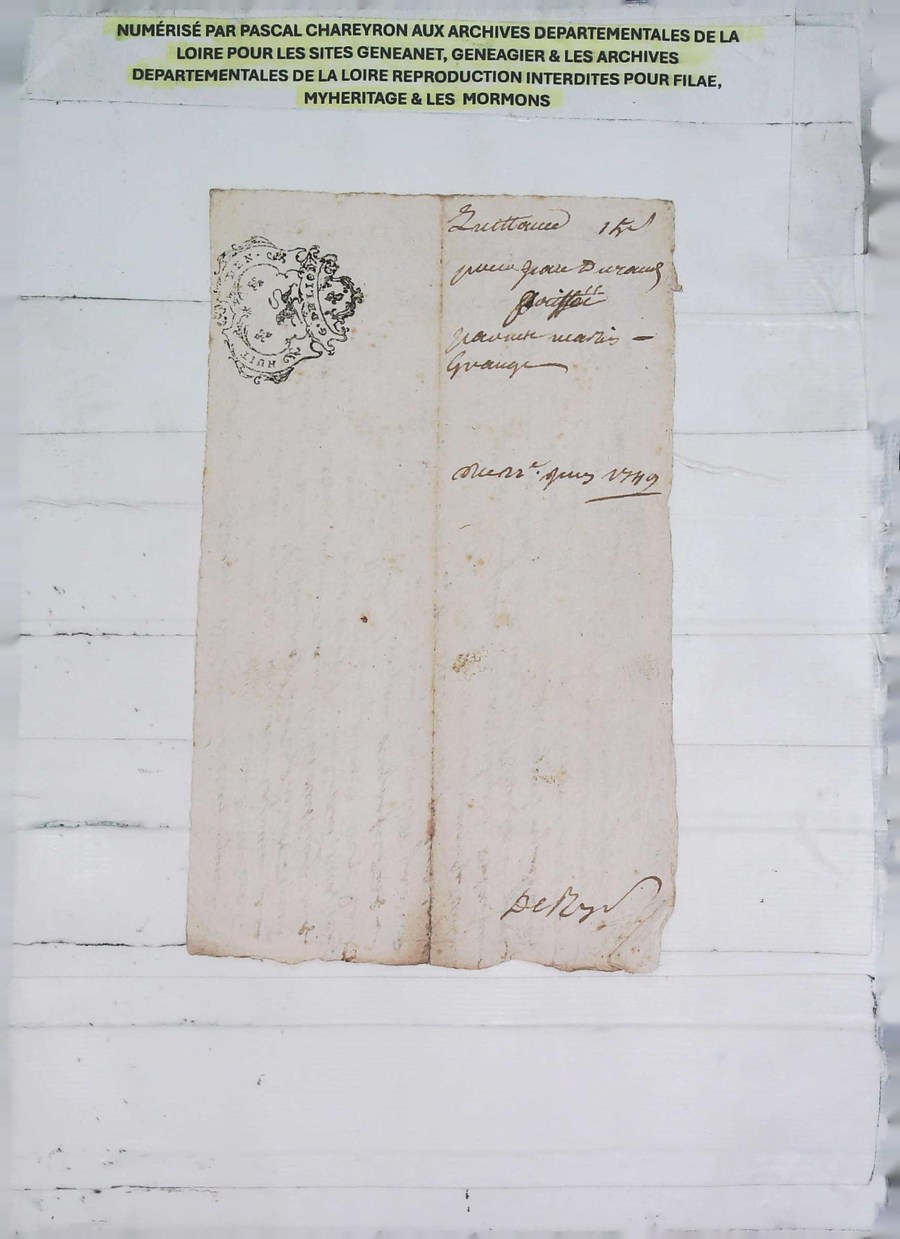 NUMÉRISÉ PAR PASCAL CHAREYRON AUX ARCHIVES DEPARTEMENTALES DE LA
LOIRE POUR LES SITES GENEANET, GENEAGIER & LES ARCHIVES
DEPARTEMENTALES DE LA LOIRE REPRODUCTION INTERDITES POUR FILAE,
MYHERITAGE & LES MORMONS
HUIT DEN.
G. DE LION
Quittance
pour Jean Durand
marie
Grange
1749